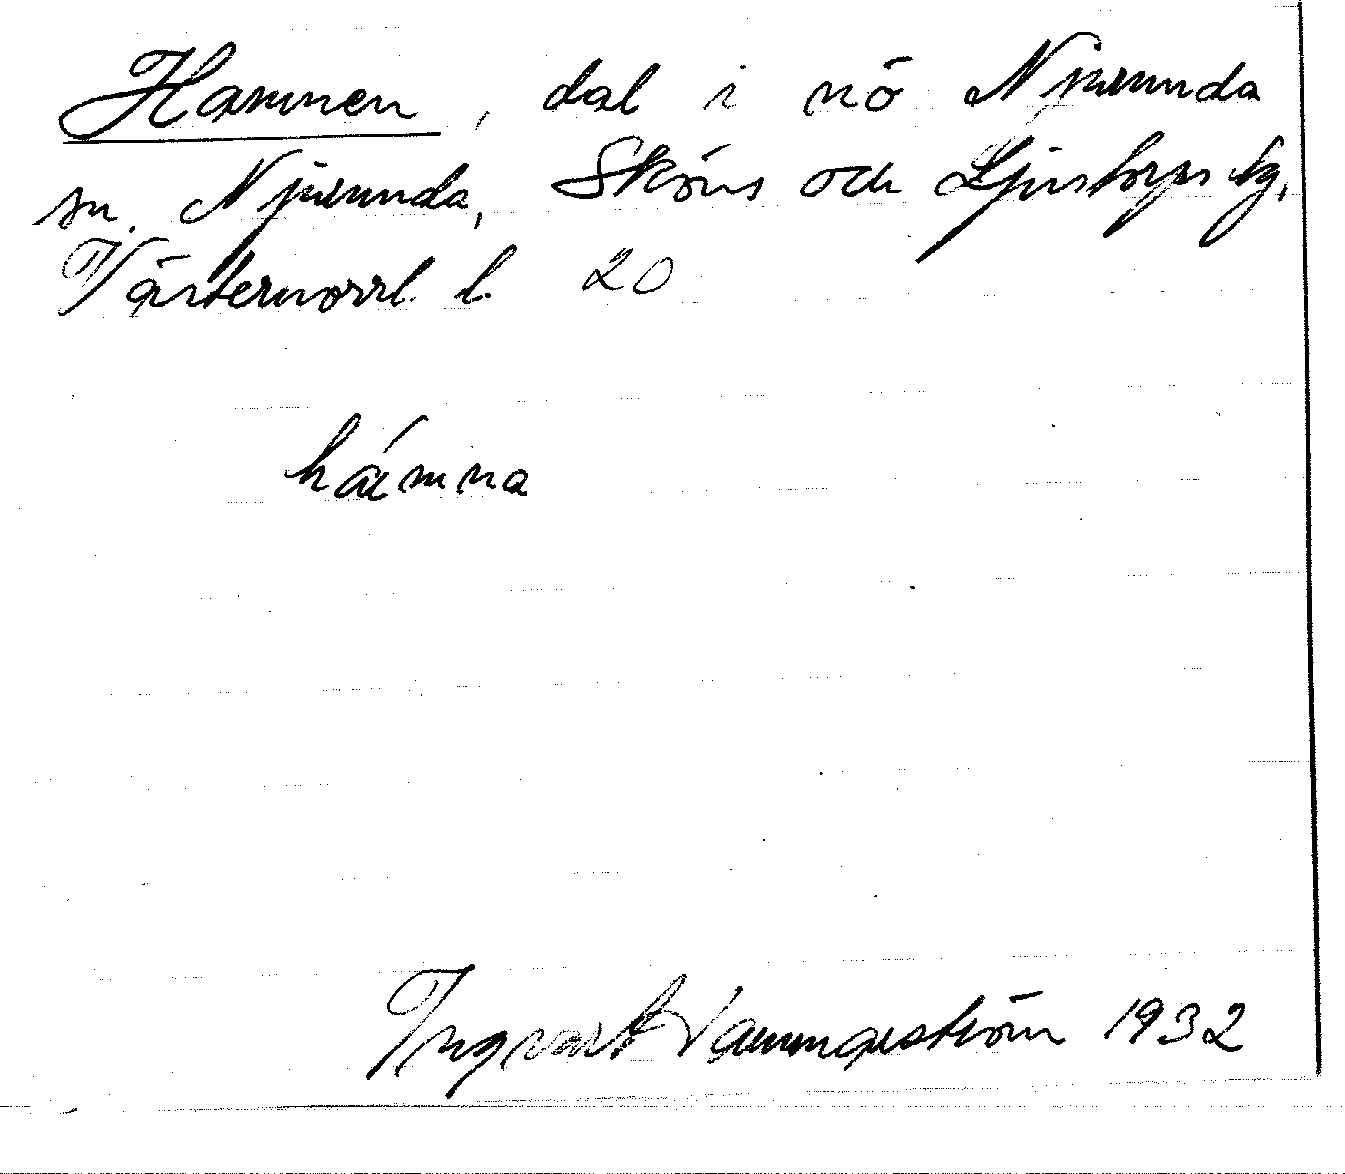 Hamnen, dal i nö Njurunda
sn. Njurunda, Sköns och Ljustorps tg,
Västernorrl. l. 20
hámna
Ingvart 1932